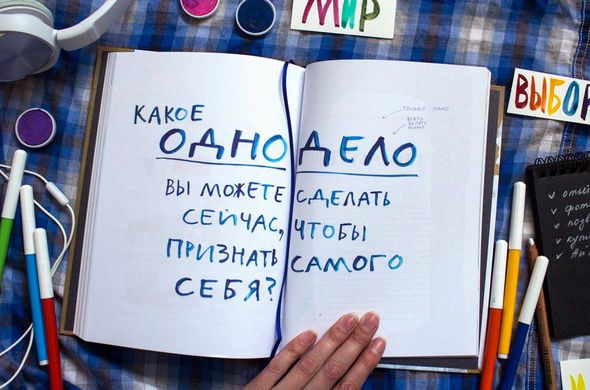 МИР
ВЫБОР
КАКОЕ
ОДНО ДЕЛО
ТОЛЬКО ОДНО
ВЫ МОЖЕТЕ СДЕЛАТЬ
СЕЙЧАС, ЧТОБЫ
ПРИЗНАТЬ САМОГО
СЕБЯ?